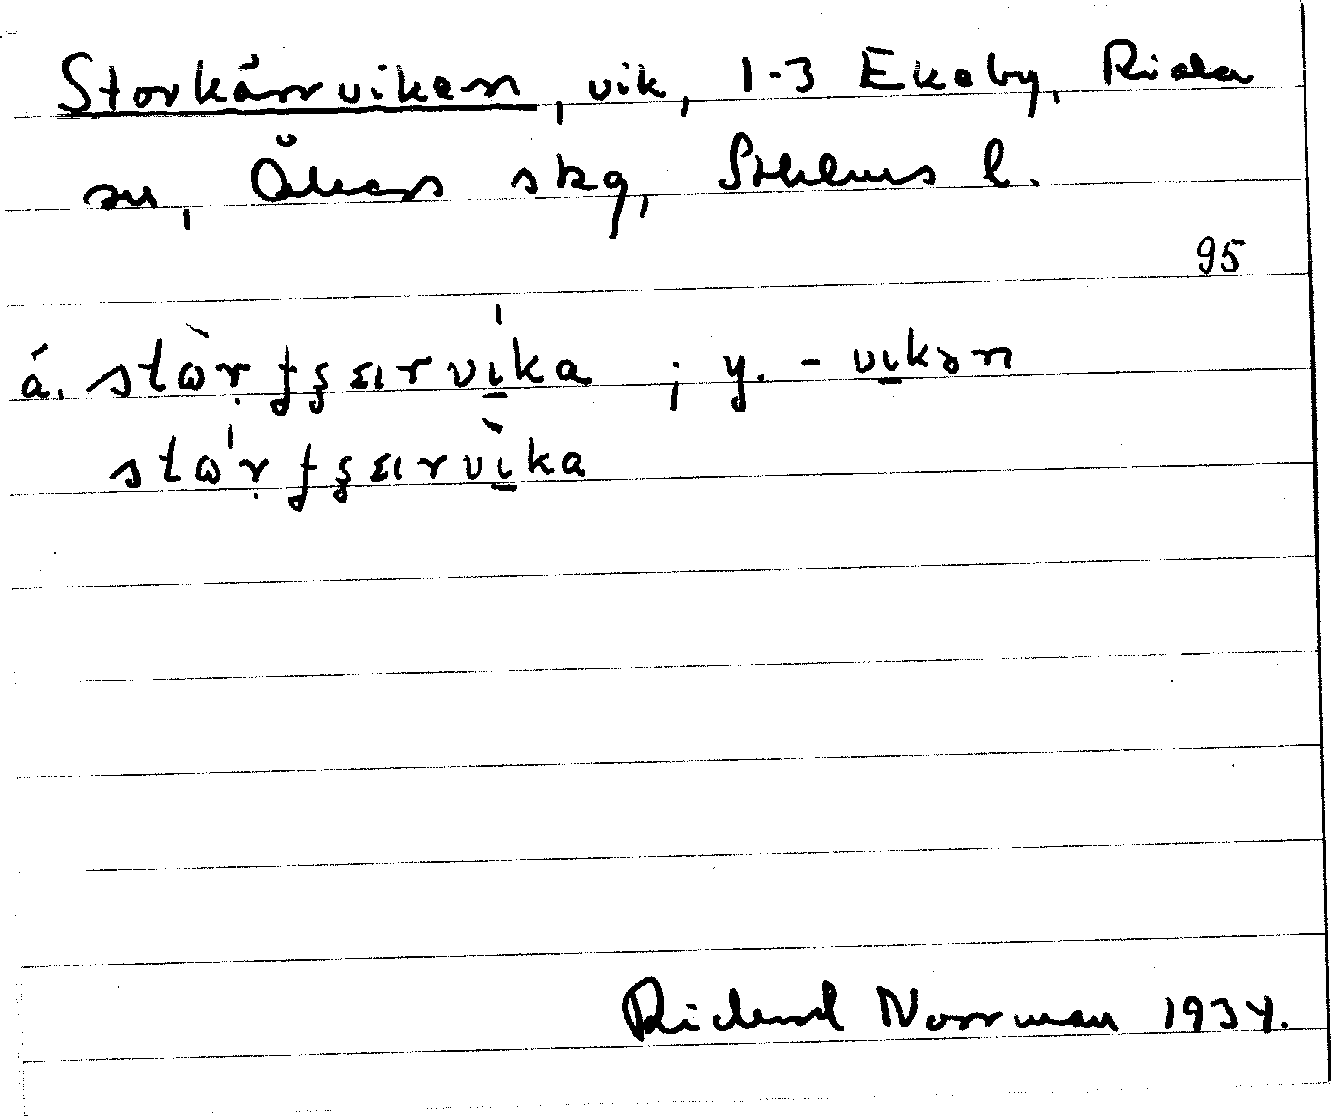 Storkärrviken, vik, 1-3 Ekeby, Riala
sn, Åkers skg, Sthlms l.
95
ä. stὼr̩ ʄʂæırvi̱ka ; y. - vi̱kən
stω̍r̩ ʄʂæırvi̱ka
Rickard Norrman 1934.